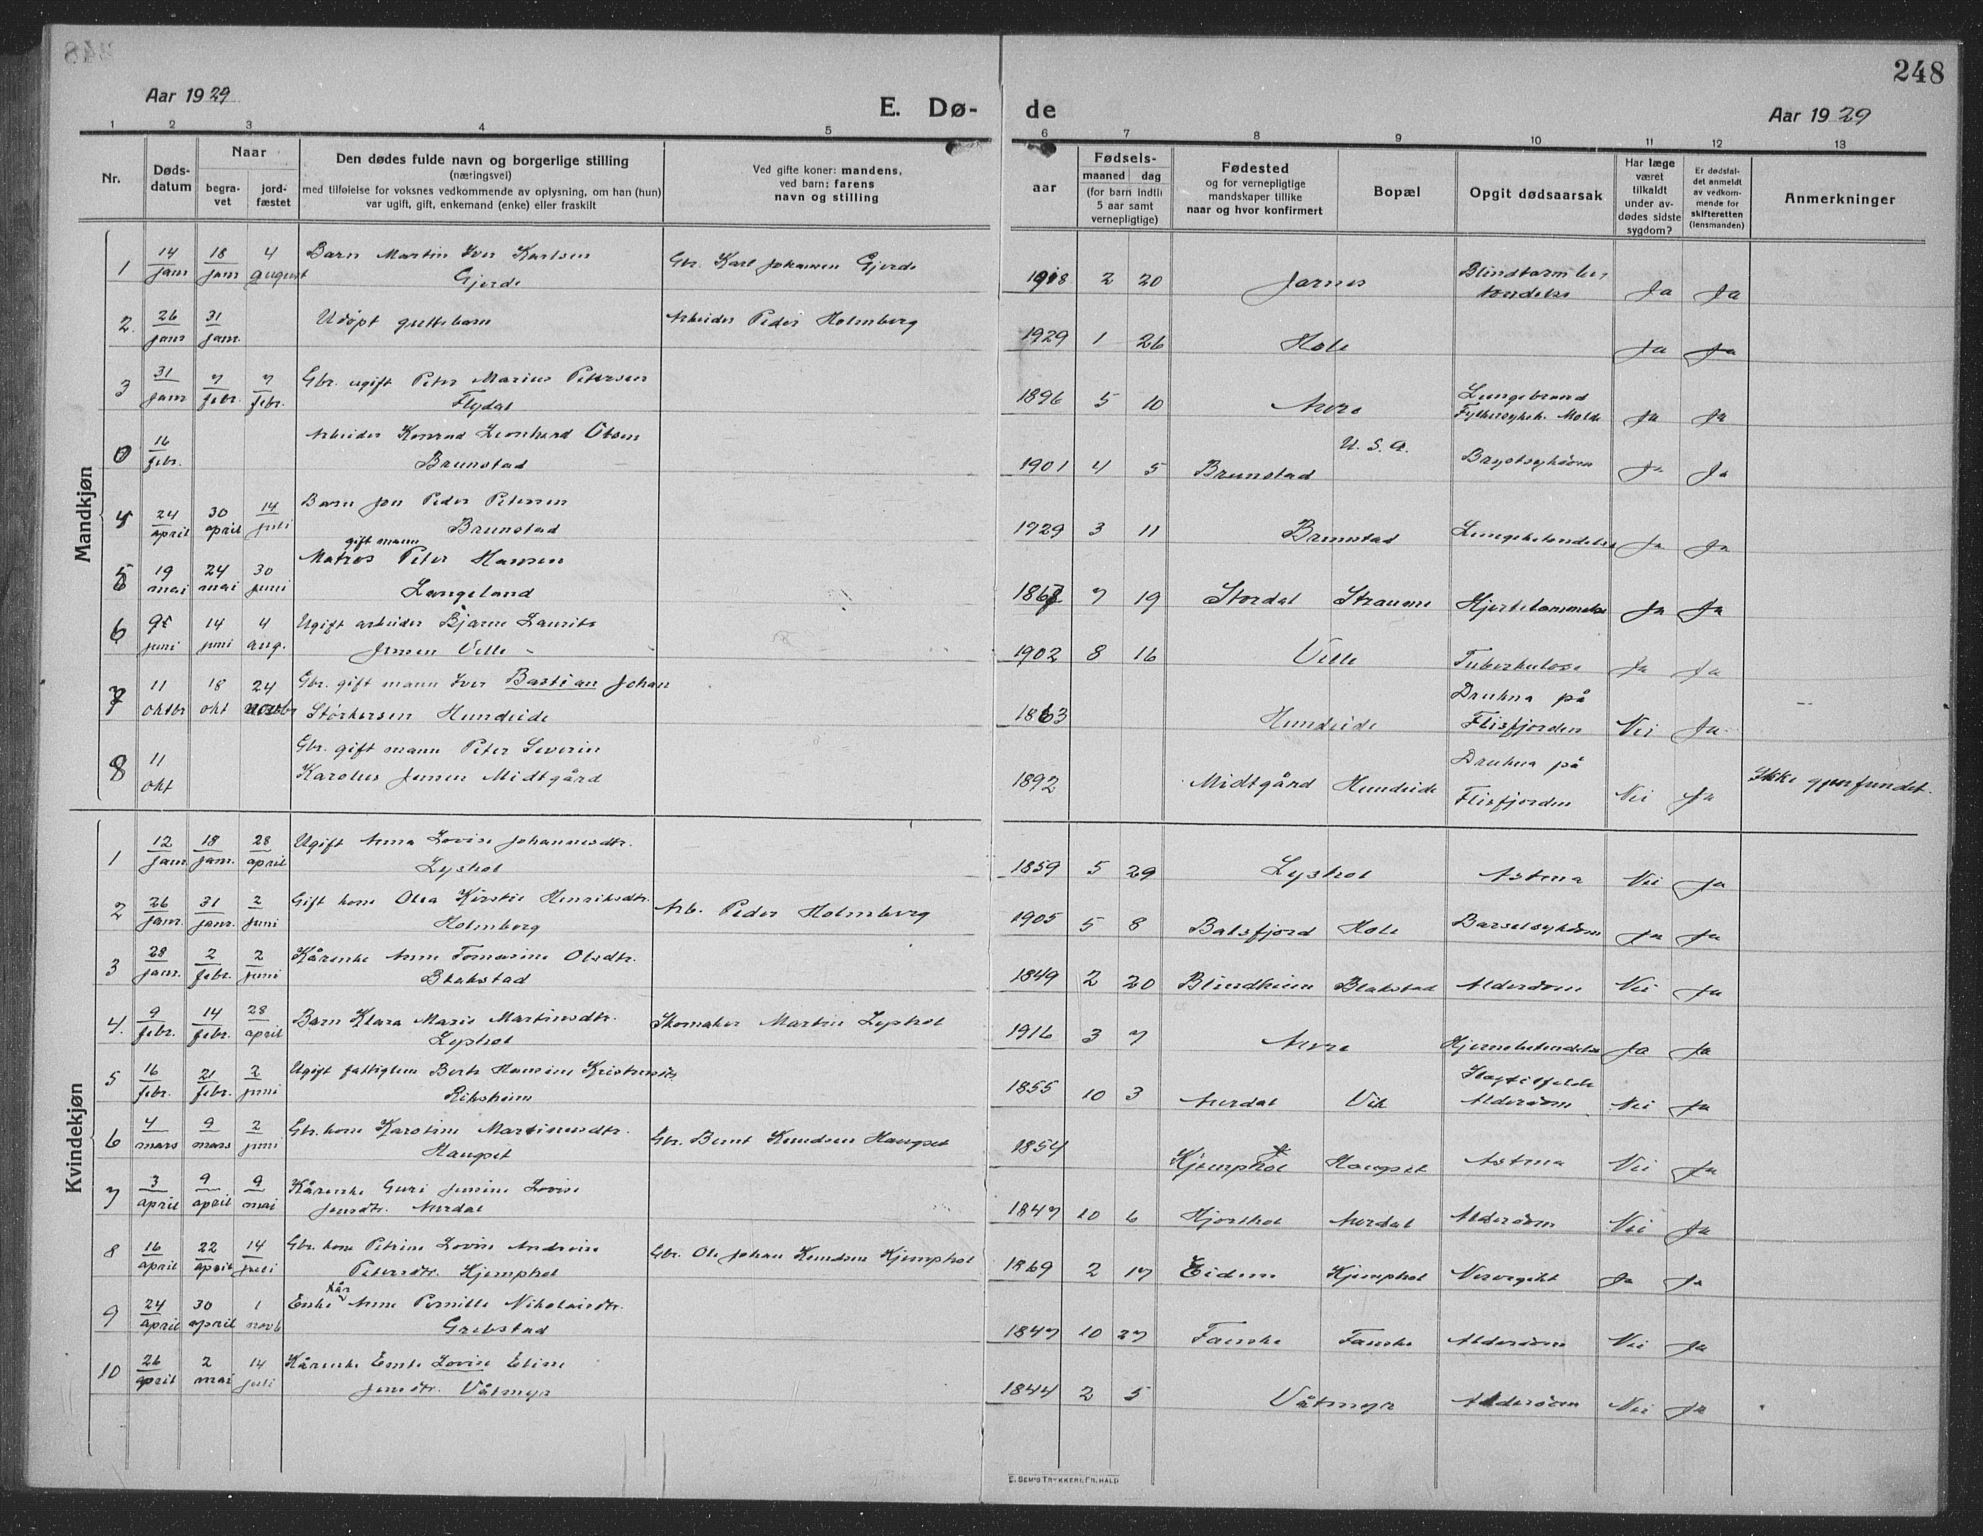 248
Aar 1929
E. Dø-
de
Aar 1929
1 2 3 4 5 6 7 8 9 10 11 12 13
Nr.
Døds-
datum
Naar
begra-
vet
jord-
fæstet
Den dødes fulde navn og borgerlige stilling
(næringsvei)
med tilføielse for voksnes vedkommende av oplysning, om han (hun)
var ugift, gift, enkemand (enke) eller fraskilt
Ved gifte koner: mandens,
ved barn: farens
navn og stilling
aar
Fødsels-
maaned dag
(for barn indtil
5 aar samt
vernepligtige)
Fødested
og for vernepligtige
mandskaper tillike
naar og hvor konfirmert
Bopæl
Opgit dødsaarsak
Har læge
været
tilkaldt
under av-
dødes sidste
sygdom?
Er dødsfal-
det anmeldt
av vedkom-
mende for
skifteretten
(lensmanden)
Anmerkninger
Mandkjøn
1 14 jan 18 jan 4 august Barn Martin Iver Karlsen Gbr. Karl Johansen Gjerde 1918 2 20 Jarnes Blindtarmbe-
Gjerde tændelse Ja Ja
2. 26 jan 31 jan. Udøpt guttebarn Arbeider Peder Holmberg 1929 1 26 Hole Ja Ja
3 31 jan 7 febr. 7 febr. Gbr. ugift Peter Marius Petersen 1896 5 10 Aure Lungebrand
Flydal Fylkessykeh. Molde Ja Ja
0 16 febr. Arbeider Konrad Leonhard Olsen 1901 4 5 Brunstad U.S.A. Brystsykdom Ja Ja
Brunstad
4 24 april 30 april 14 juli Barn Jon Peder Petersen 1929 3 11 Brunstad Lungebetændelse Ja Ja
Brunstad
gift mann
5 19 mai 24 mai 30 juni Matros Peter Hansen 1867 7 19 Stordal Straume Hjertelammelse Ja Ja
Langeland
6 9 juni 14 juni 4 aug. Ugift arbeider Bjarne Laurits 1902 8 16 Velle Tuberkulose Ja Ja
Jensen Velle
7 11 oktbr 18 okt 24 novbr Gbr. gift mann Iver Bastian Johan 1863 Hundeide Drukna på
Størkersen Hundeide Flisfjorden Nei Ja
8 11 okt Gbr. gift mann Peter Severin 1892 Midtgård Hundeide Drukna på
Karolius Jensen Midtgård Flisfjorden Nei Ja Ikke gjenfundet.
Kvindekjøn
1 12 jan. 18 jan. 28 april Ugift Anna Lovise Johannesdtr. 1859 5 29 Lyshol Astma Nei Ja
Lyshol
2 26 jan. 31 jan. 2 juni Gift kone Olea Kirstie Henriksdtr. Arb. Peder Holmberg 1905 5 8 Balsfjord Hole Barselsykdom Ja Ja
Holmberg
3 28 jan. 2 febr. 2 juni Kårenke Anne Tomasine Olsdtr. 1849 2 20 Blindheim Blakstad Alderdom Nei Ja
Blakstad
4. 9 febr. 14 febr. 28 april Barn Klara Marie Martinsdtr. Skomaker Martin Lyshol 1916 3 7 Aure Hjernebetendelse Ja Ja
Lyshol
5 16 febr. 21 febr. 2 juni Ugift fattiglem Berte Hansine Kristensdtr 1855 10 3 Aurdal Vik Slagtilfelde
Riksheim Alderdom Nei Ja
6 4 mars 9 mars 2 juni Gbr. kone Karoline Martinusdtr. Gbr. Bernt Knudsen Haugset 1854 Kjemphol Haugset Astma Nei Ja
Haugset
7 3 april 9 april 9 mai Kårenke Guri Jensine Lovise 1847 10 6 Hjorthol Aurdal Alderdom Nei Ja
Jensdtr. Aurdal
8 16 april 22 april 14 juli Gbr. kone Petrine Lovise Andrine Gbr. Ole Johan Knudsen Kjemphol 1869 2 17 Eidem Kjemphol Nervegikt Ja Ja
Petersdtr. Kjemphol
Kår
9 24 april 30 april 1 novb Enke Anne Pernille Nikolaisdtr. 1847 10 27 Fauske Fauske Alderdom Nei Ja
Grebstad
10 26 april 2 mai 14 juli Kårenke Emte Lovise Eline 1844 2 5 Våtmyr Alderdom Nei Ja
Jensdtr. Våtmyr
E. SEM'S TRYKKERI, FR.HALD